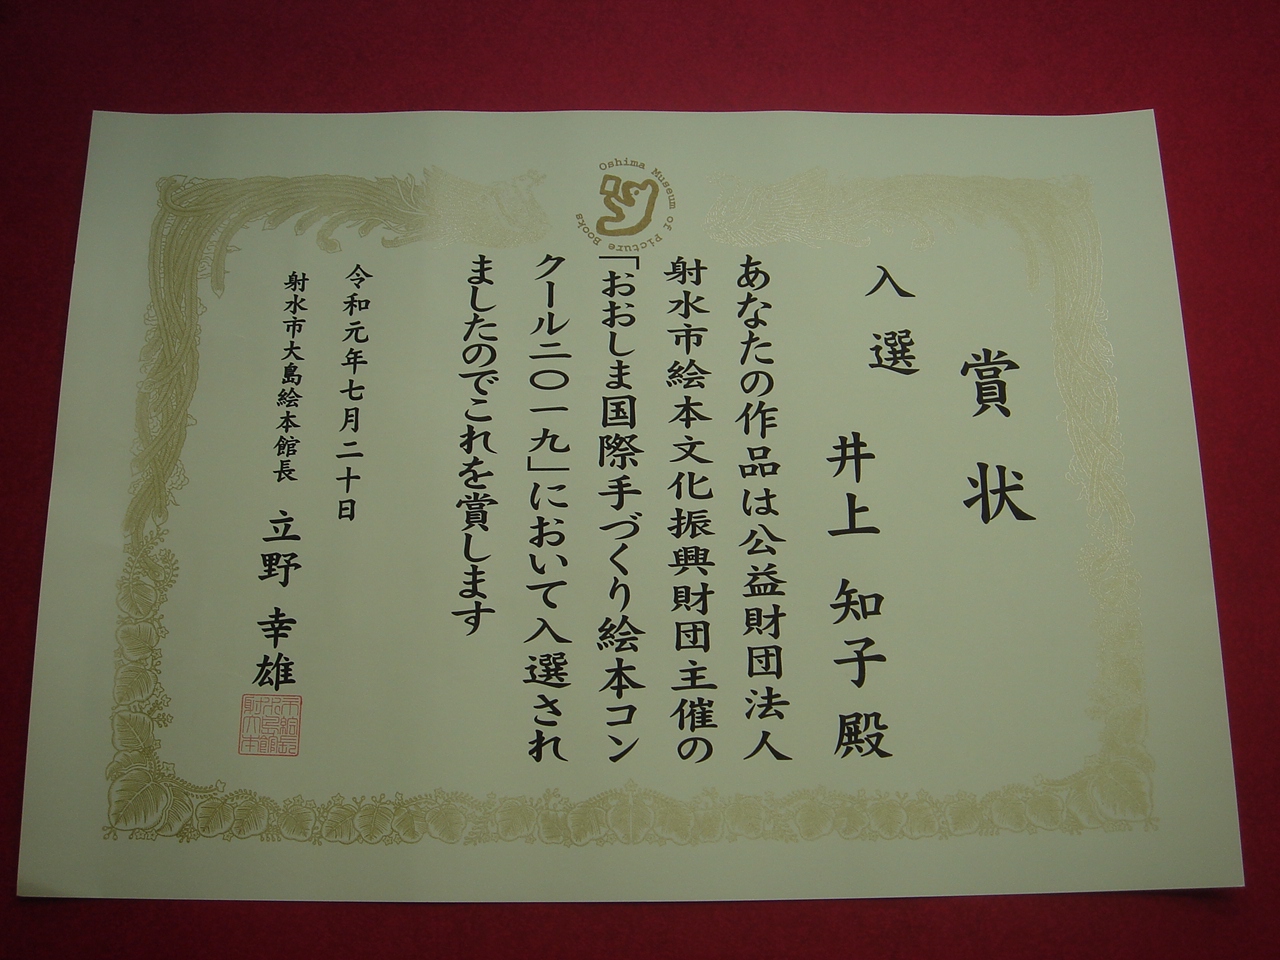 Oshima Museum of Picture Books
賞状
入選
井上 知子 殿
あなたの作品は公益財団法人
射水市絵本文化振興財団主催の
「おおしま国際手づくり絵本コン
クール二〇一九」において入選され
ましたのでこれを賞します
令和元年七月二十日
射水市大島絵本館長 立野 幸雄